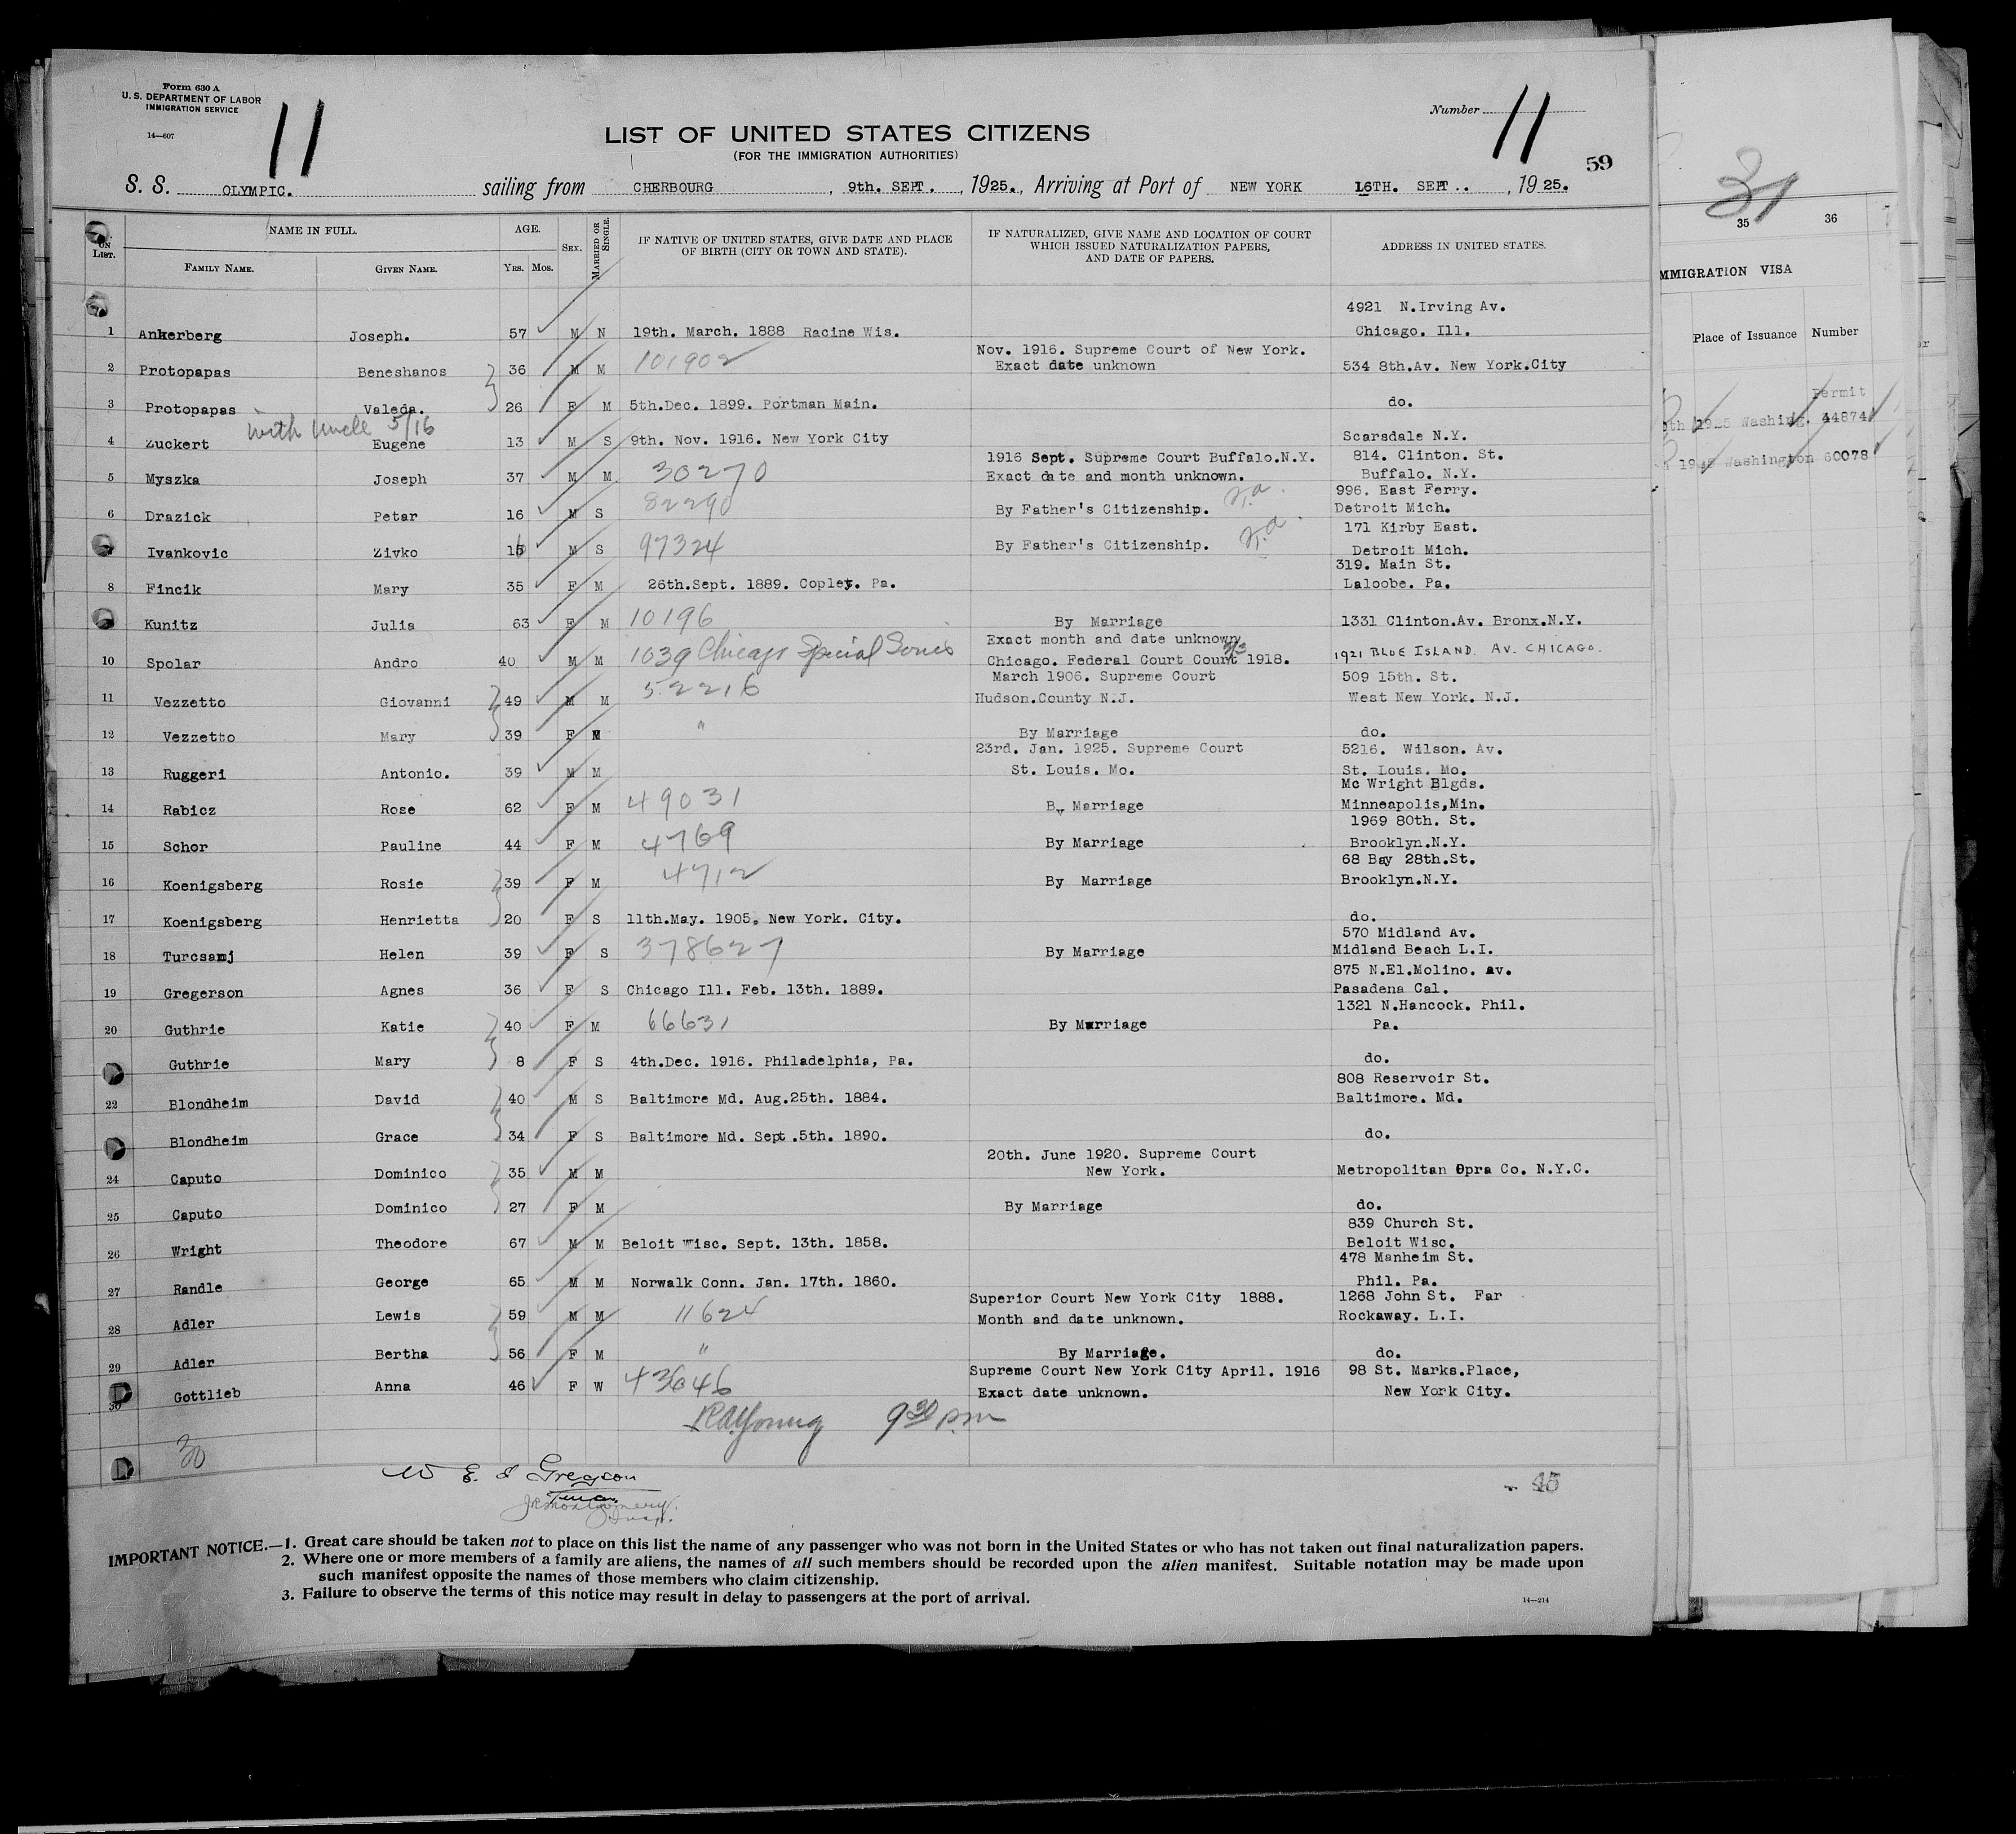 Form 630 A
U. S. DEPARTMENT OF LABOR
IMMIGRATION SERVICE
14—607
11
Number 11
LIST OF UNITED STATES CITIZENS
(FOR THE IMMIGRATION AUTHORITIES)
59
S. S. OLYMPIC. sailing from CHERBOURG, 9th. SEPT., 1925., Arriving at Port of NEW YORK 16TH. SEPT.., 1925.
ON LIST. NAME IN FULL. FAMILY NAME. GIVEN NAME. AGE. YRS. MOS. SEX. MARRIED OR SINGLE. IF NATIVE OF UNITED STATES, GIVE DATE AND PLACE OF BIRTH (CITY OR TOWN AND STATE). IF NATURALIZED, GIVE NAME AND LOCATION OF COURT WHICH ISSUED NATURALIZATION PAPERS, AND DATE OF PAPERS. ADDRESS IN UNITED STATES.
4921 N.Irving Av.
1 Ankerberg Joseph. 57 M N 19th. March. 1888 Racine Wis. Chicago. Ill.
Nov. 1916. Supreme Court of New York.
2 Protopapas Beneshanos 36 M M 101902 Exact date unknown 534 8th.Av. New York.City
3 Protopapas Valeda. 26 F M 5th.Dec. 1899. Portman Main. do.
with uncle 5/16
4 Zuckert Eugene 13 M S 9th. Nov. 1916. New York City Scarsdale N.Y.
1916 Sept. Supreme Court Buffalo.N.Y. 814. Clinton. St.
5 Myszka Joseph 37 M M 30270 Exact date and month unknown. Buffalo. N.Y.
996. East Ferry.
6 Drazick Petar 16 M S 82290 By Father's Citizenship. Detroit Mich.
171 Kirby East.
Ivankovic Zivko 16 M S 97324 By Father's Citizenship. Detroit Mich.
319. Main St.
8 Fincik Mary 35 F M 26th.Sept. 1889. Copley. Pa. Laloobe. Pa.
Kunitz Julia 63 F M 10196 By Marriage 1331 Clinton.Av. Bronx.N.Y.
Exact month and date unknown
10 Spolar Andro 40 M M 1039 Chicago Special Series Chicago. Federal Court Court 1918. 1921 BLUE ISLAND. AV. CHICAGO.
March 1906. Supreme Court 509 15th. St.
11 Vezzetto Giovanni 49 M M 52216 Hudson.County N.J. West New York. N.J.
12 Vezzetto Mary 39 F M " By Marriage do.
23rd. Jan. 1925. Supreme Court 5216. Wilson. Av.
13 Ruggeri Antonio. 39 M M St. Louis. Mo. St. Louis. Mo.
Mc Wright Blgds.
14 Rabicz Rose 62 F M 49031 By Marriage Minneapolis,Min.
1969 80th. St.
15 Schor Pauline 44 F M 4769 By Marriage Brooklyn.N.Y.
68 Bay 28th.St.
16 Koenigsberg Rosie 39 F M 4712 By Marriage Brooklyn.N.Y.
17 Koenigsberg Henrietta 20 F S 11th.May. 1905. New York. City. do.
570 Midland Av.
18 Turcsamj Helen 39 F S 378627 By Marriage Midland Beach L.I.
875 N.El.Molino. av.
19 Gregerson Agnes 36 F S Chicago Ill. Feb. 13th. 1889. Pasadena Cal.
1321 N.Hancock. Phil.
20 Guthrie Katie 40 F M 66631 By Marriage Pa.
Guthrie Mary 8 F S 4th.Dec. 1916. Philadelphia, Pa. do.
808 Reservoir St.
22 Blondheim David 40 M S Baltimore Md. Aug.25th. 1884. Baltimore. Md.
Blondheim Grace 34 F S Baltimore Md. Sept.5th. 1890. do.
20th. June 1920. Supreme Court
24 Caputo Dominico 35 M M New York. Metropolitan Opra Co. N.Y.C.
25 Caputo Dominico 27 F M By Marriage do.
839 Church St.
26 Wright Theodore 67 M M Beloit Wisc. Sept. 13th. 1858. Beloit Wisc.
478 Manheim St.
27 Randle George 65 M M Norwalk Conn. Jan. 17th. 1860. Phil. Pa.
Superior Court New York City 1888. 1268 John St. Far
28 Adler Lewis 59 M M 11624 Month and date unknown. Rockaway. L.I.
29 Adler Bertha 56 F M " By Marriage. do.
Supreme Court New York City April. 1916 98 St. Marks.Place,
30 Gottlieb Anna 46 F W 43646 Exact date unknown. New York City.
RAYoung 9 30 p.m
30
W E. J Gregson
JRMontgomery.
Insp.
45
IMPORTANT NOTICE.—1. Great care should be taken not to place on this list the name of any passenger who was not born in the United States or who has not taken out final naturalization papers.
2. Where one or more members of a family are aliens, the names of all such members should be recorded upon the alien manifest. Suitable notation may be made upon
such manifest opposite the names of those members who claim citizenship.
3. Failure to observe the terms of this notice may result in delay to passengers at the port of arrival.
14—214
31
35 36
MMIGRATION VISA
Place of Issuance Number
Permit
1925 Washing. 44874
Washington 60078